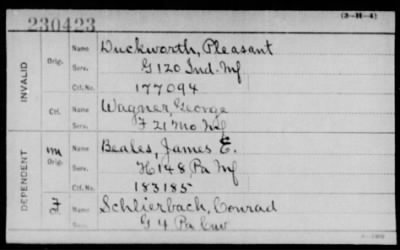 230423
(3-H-4)
INVALID
Orig.
Name Duckworth, Pleasant
Serv. G 120 Ind. Inf
Ctf. No. 177094
Ctf.
Name Wagner, George
Serv. F 21 Mo Inf
DEPENDENT
Orig.
Name Beales, James E.
Serv. H 148 Pa Inf
Ctf. No. 183185
Name Schlierbach, Conrad
Serv. G 4 Pa Cav